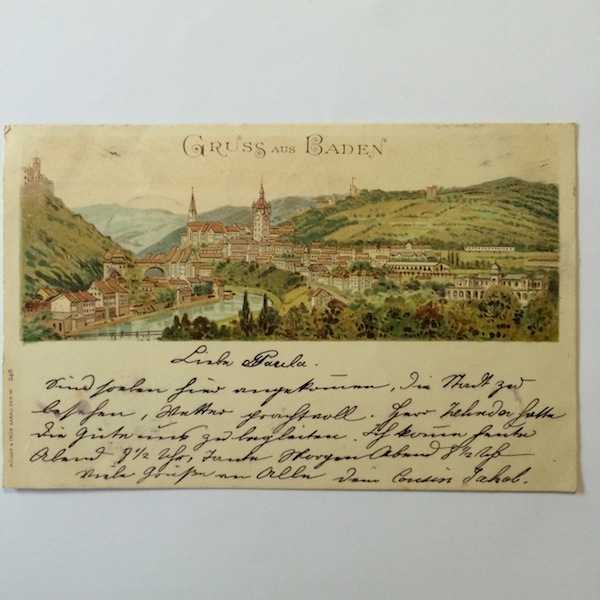 GRUSS AUS BADEN
Liebe Paula.
Sind soeben hier angekommen, die Stadt zu
besehen, Wetter prachtvoll. Herr Zehnder hatte
die Güte uns zu begleiten. Ich komme heute
Abend 8½ Uhr, Tante Morgen Abend 8½ Uhr
Viele Grüße an Alle dein Cousin Jakob.
248